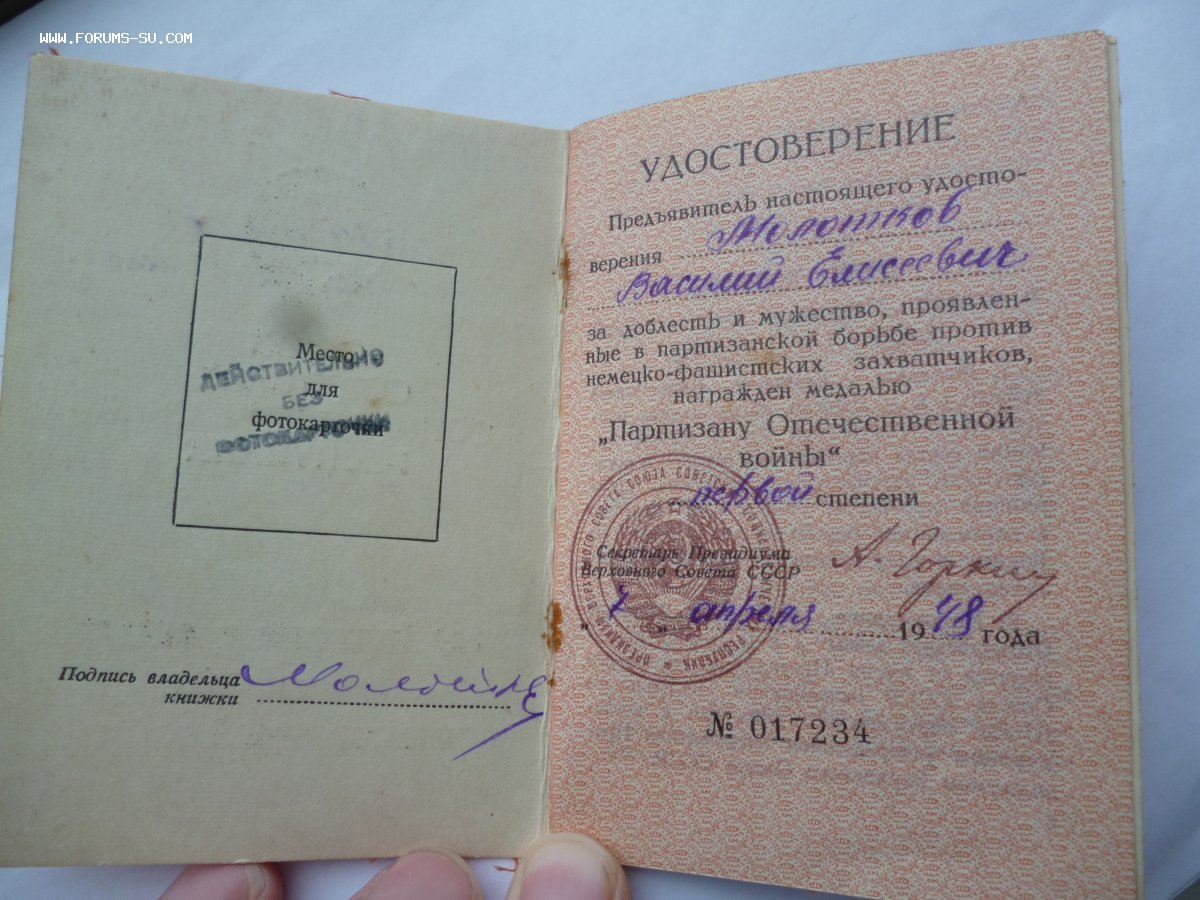 WWW.FORUMS-SU.COM
Место
для
фотокарточки
ДЕЙСТВИТЕЛЬНО
БЕЗ
ФОТОКАРТОЧКИ
Подпись владельца
книжки
УДОСТОВЕРЕНИЕ
Предъявитель настоящего удосто-
верения Молотков
Василий Елисеевич
за доблесть и мужество, проявлен-
ные в партизанской борьбе против
немецко-фашистских захватчиков,
награжден медалью
„Партизану Отечественной
войны“
первой степени
Секретарь Президиума
Верховного Совета СССР
А. Горкин
"7" апреля 1948 года
№ 017234